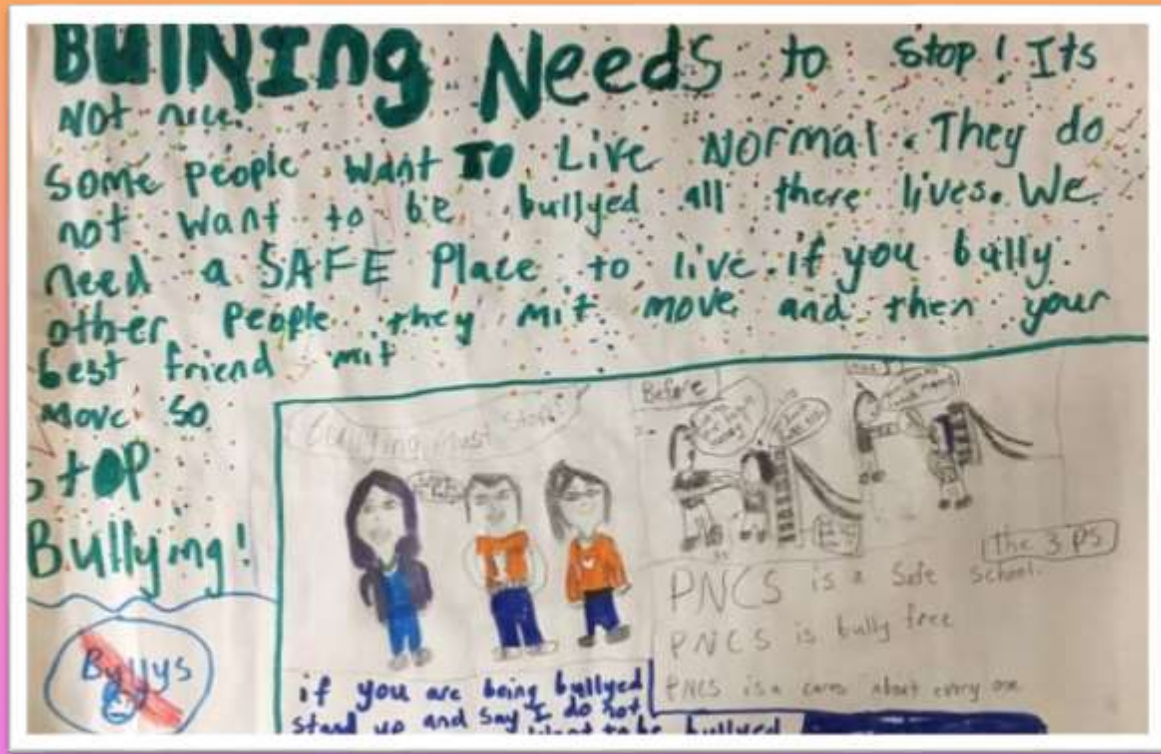 BUllYIng Needs to stop! Its
Not nice.
Some people want TO Live NORMal. They do
not want to be bullyed all there lives. We
need a SAFE Place to live. if you bully
other People they mit move and then your
best friend mit
move so
StOP
Bullying!
Bullys
Bullying Must Stop!
Before
the 3 PS
PNCS is a Safe School.
PNCS is bully free
PNCS is a cares about every one
if you are being bullyed
stand up and say I do not
want to be bullyed